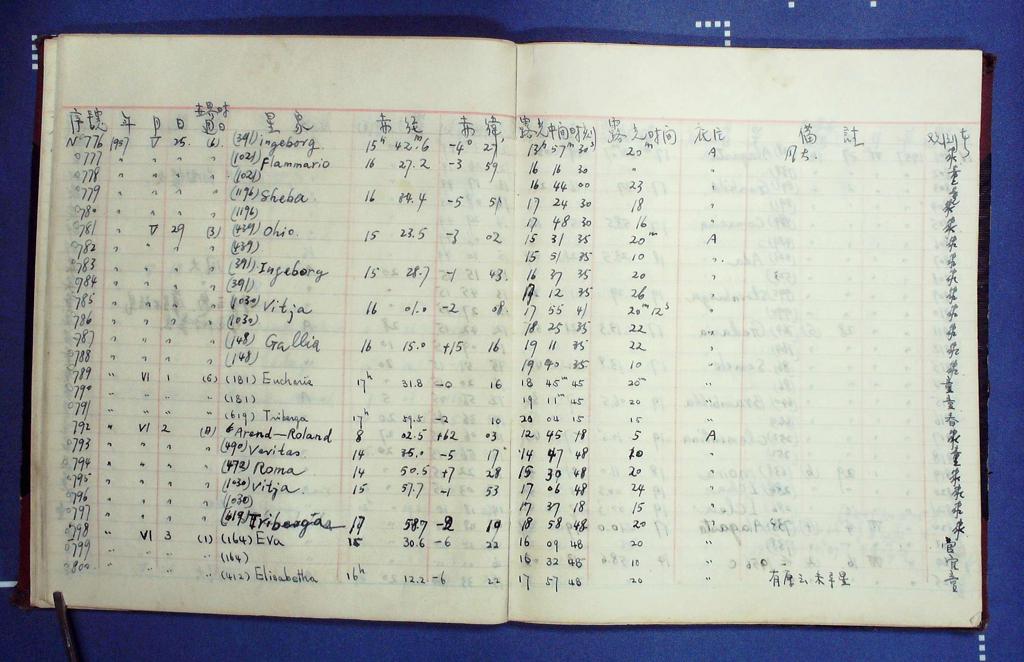 序號 年 月 日 星期 星象 赤經 赤緯 露光中間時刻 露光時間 底片 備註
No 776 1957 V 25. (6) (391) Ingeborg 15h 42.m6 -4° 27' 13h 57m 30s 20m A
0777 " " " (1021) Flammario 16 27.2 -3 59 16 16 30 " "
0778 " " " (1021) 16 44 00 23 "
0779 " " " (1196) Sheba 16 34.4 -5 51 17 24 30 18 "
0780 " " " (1196) 17 48 30 16 "
0781 " V 29 (3) (439) Ohio. 15 23.5 -3 02 15 31 35 20m A
0782 " " " (439) 15 51 35 10 "
0783 " " " (391) Ingeborg 15 28.7 -1 43 16 37 35 20 "
0784 " " " (391) 17 12 35 26 "
0785 " " " (1030) Vitja 16 01.0 -2 08 17 55 41 20m 12s "
0786 " " " (1030) 18 25 35 22 "
0787 " " " (148) Gallia 16 15.0 +15 16 19 11 35 22 "
0788 " " " (148) 19 40 35 10 "
0789 " VI 1 (6) (181) Eucharis 17h 31.8 -0 16 18 45m 45 20 "
0790 " " " (181) 19 11m 45 20 "
0791 " " " (619) Triberga 17h 59.5 -2 10 20 04 15 15 "
0792 " VI 2 (日) Arend—Roland 8 02.5 +62 03 12 45 18 5 A
0793 " " " (490) Veritas 14 35.0 -5 17 14 47 48 20 "
0794 " " " (472) Roma 14 50.5 +7 28 15 30 48 20 "
0795 " " " (1030) Vitja 15 57.7 -1 53 17 06 48 24 "
0796 " " " (1030) 17 37 18 15 "
0797 " " " (619) Triberga 17 58.7 -2 19 18 58 48 20 "
0798 " VI 3 (1) (164) Eva 15 30.6 -6 22 16 09 48 20 "
0799 " " " (164) 16 32 48 10 "
0800 " " " (412) Elisabetha 16h 12.2 -6 22 17 57 48 20 "